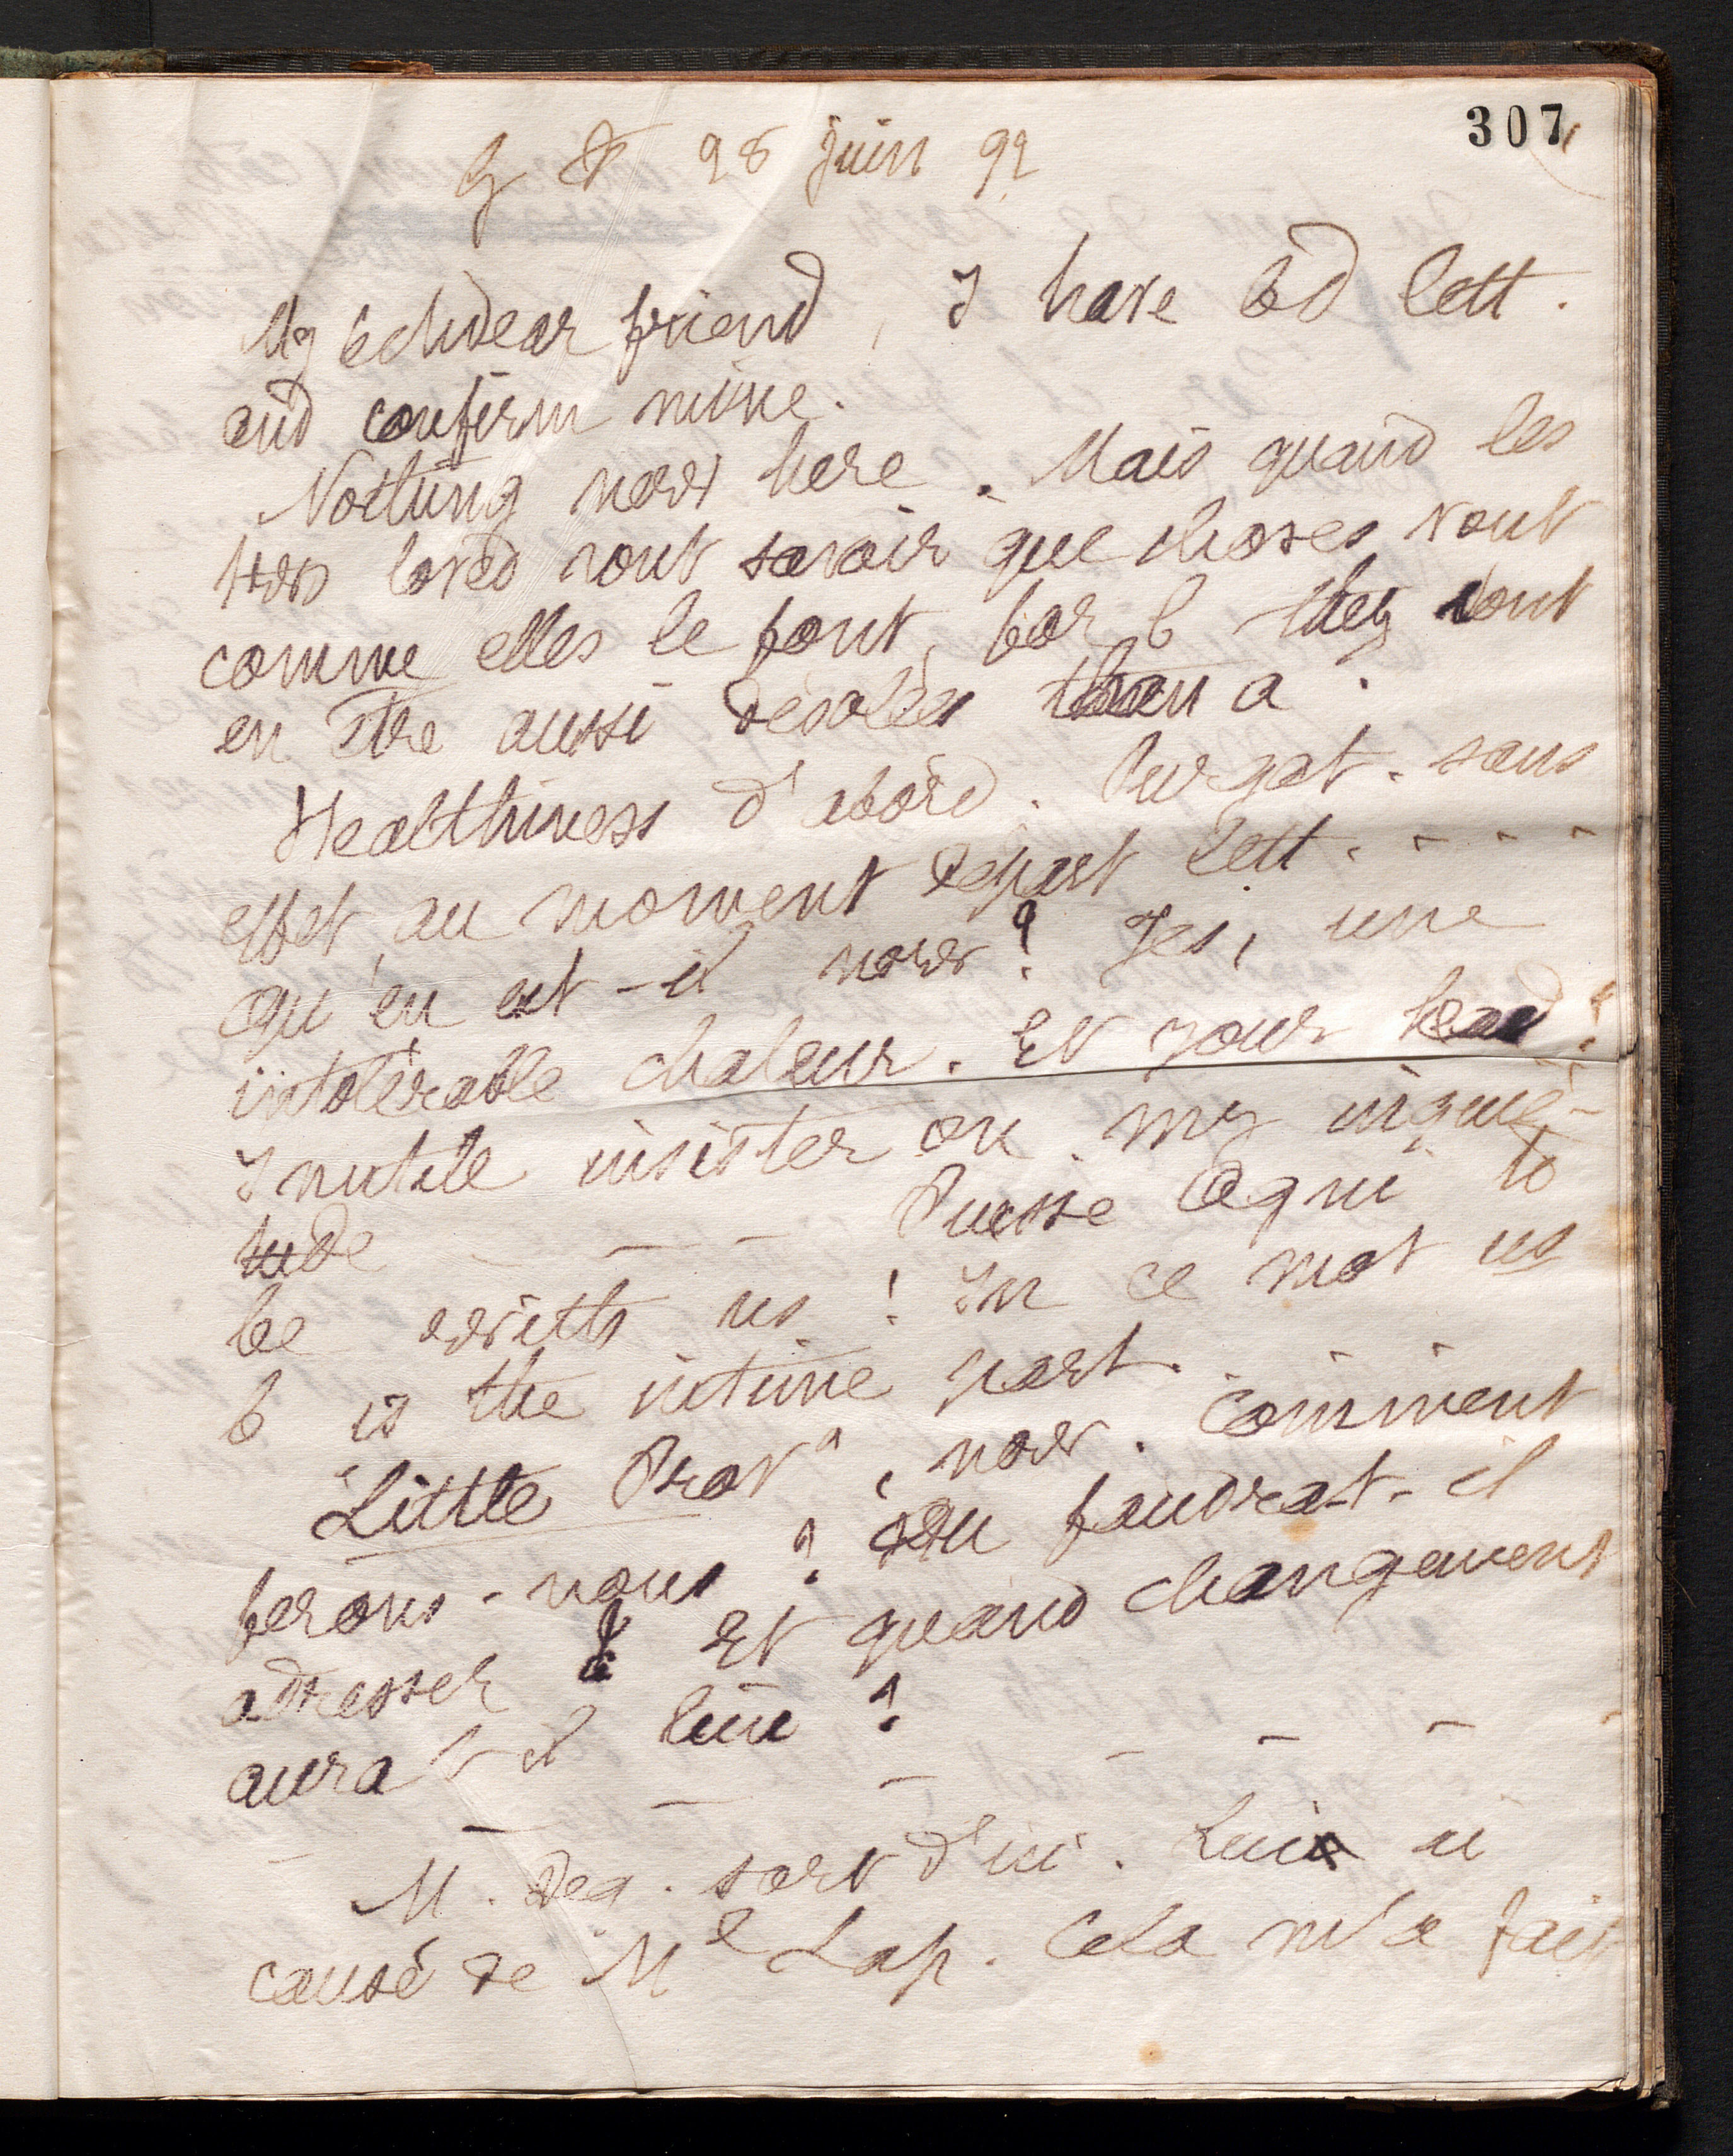 307
28 juin 92
My dear friend, I have bd lett.
and confirm mine.
Nothing now here. Mais quand les
two loved vont savoir que choses vont
comme elles le font, for b they vont
en être aussi désolées than a.
Healthiness d'abord. Purgat. sans
effet, au moment départ lett. - - - -
Qu'en est-il now? Yes, une
intolérable chaleur. Et your head?
Inutile insister on my inquié-
tude - - - Puisse Agni to
be with us! In ce mot us
b is the intime part.
Little Prova, now. Comment
ferons-nous? Où faudrat-il
adresser? Et quand changement
aura-t-il lieu?
- - - - - - -
M. Deq. sort d'ici. Lui ai
causé de Me Lap. Cela m'a fait